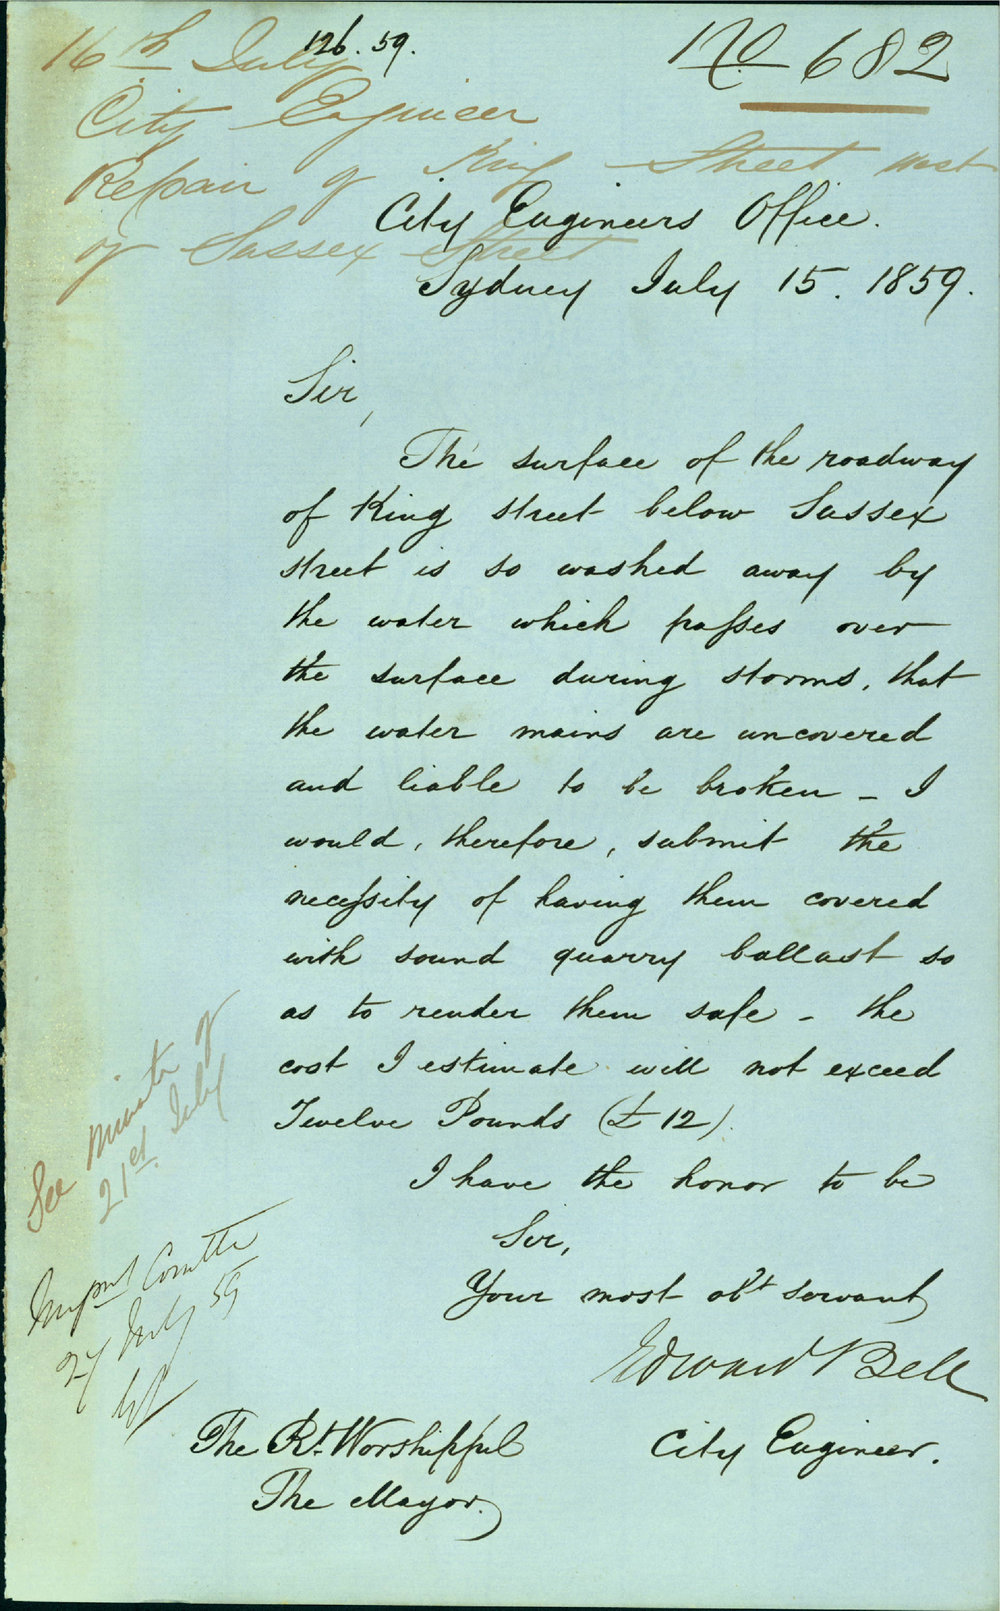 16th July 126.59.
No 682
City Engineer
Repair of King Street West
of Sussex Street
City Engineers Office.
Sydney July 15. 1859.
Sir,
The surface of the roadway
of King street below Sussex
street is so washed away by
the water which passes over
the surface during storms, that
the water mains are uncovered
and liable to be broken – I
would, therefore, submit the
necessity of having them covered
with sound quarry ballast so
as to render them safe – the
cost I estimate will not exceed
Twelve Pounds (£12).
I have the honor to be
Sir,
Your most obt servant
Edward Bell
City Engineer.
The Rt. Worshipful
The Mayor.
See Minute of
21st July
Impmt Comttee
27 July 59